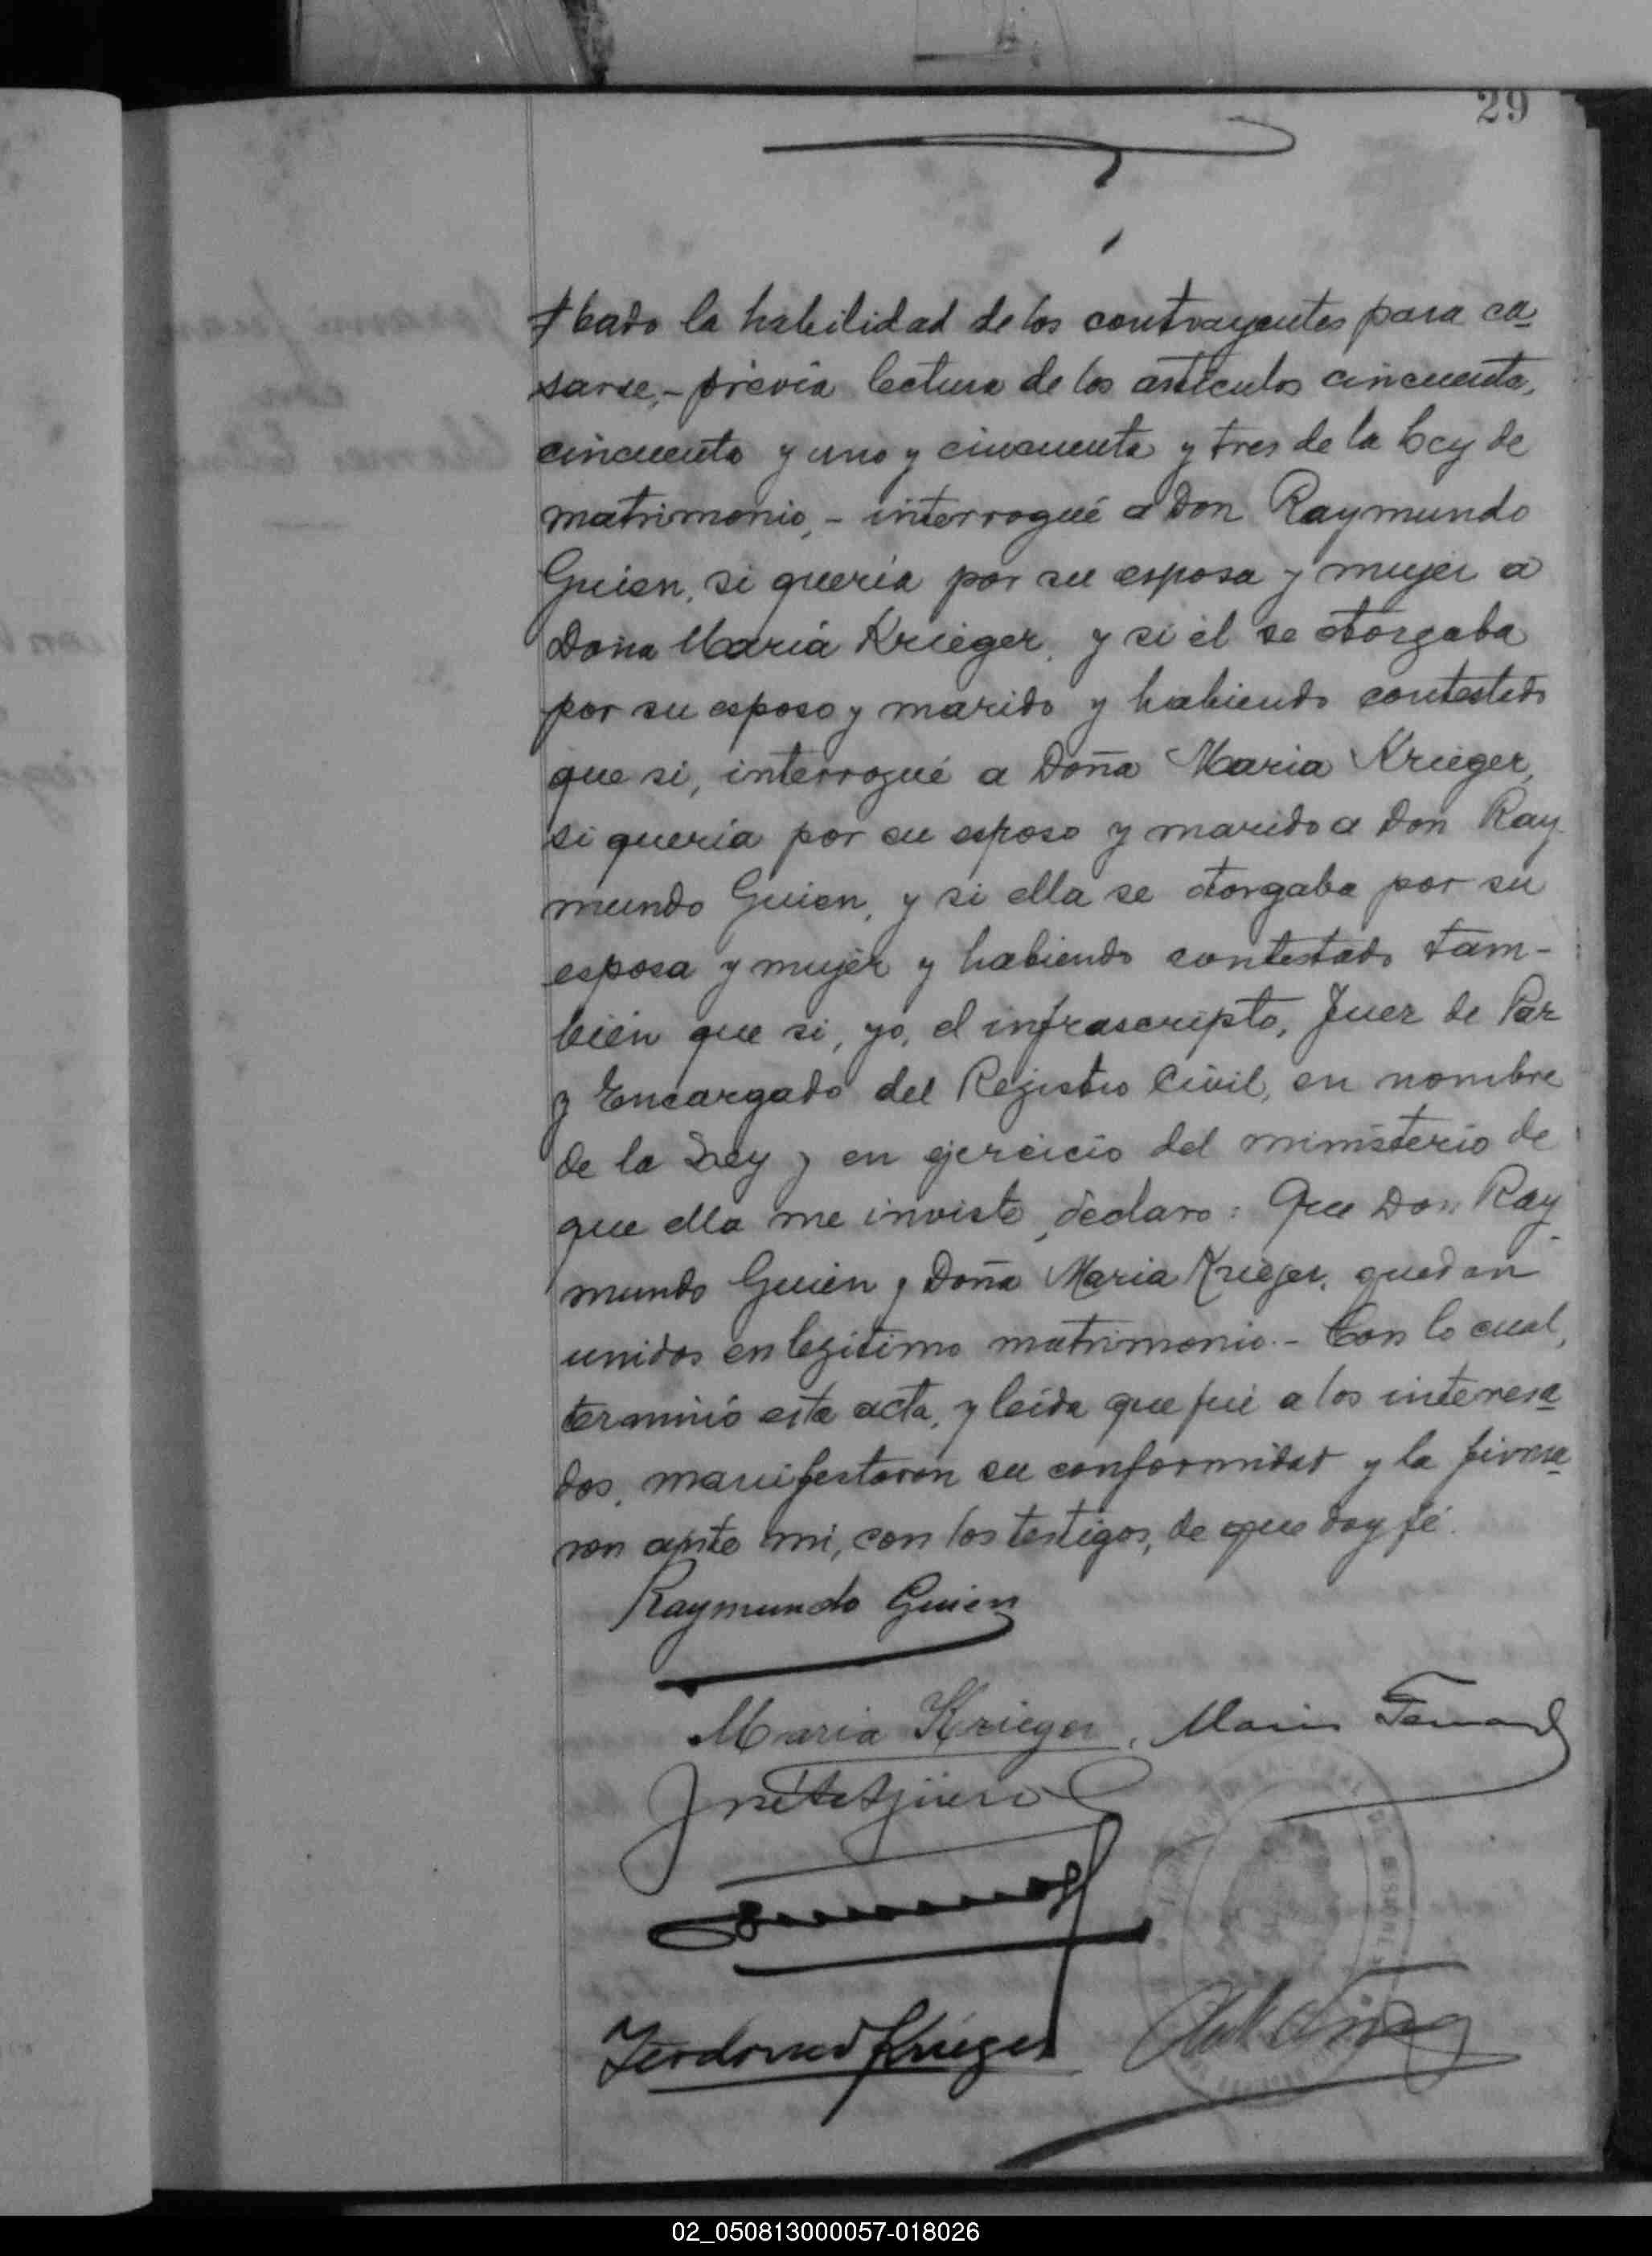 29
bado la habilidad de los contrayentes para ca
sarse,- previa lectura de los artículos cincuenta,
cincuenta y uno y cincuenta y tres de la Ley de
matrimonio, - interrogué a Don Raymundo
Guien, si quería por su esposa y mujer a
Doña María Krieger, y si él se otorgaba
por su esposo y marido y habiendo contestado
que si, interrogué a Doña Maria Krieger,
si quería por su esposo y marido a Don Ray
mundo Guien, y si ella se otorgaba por su
esposa y mujer y habiendo contestado tam-
bién que si, yo, el infrascripto, Juez de Paz
y Encargado del Registro Civil, en nombre
de la Ley y en ejercicio del ministerio de
que ella me inviste, declaro: Que Don Ray-
mundo Guien y Doña Maria Krieger, quedan
unidos en legítimo matrimonio.- Con lo cual,
terminó esta acta, y leída que fué a los interesa
dos, manifestaron su conformidad y la firma
ron ante mi, con los testigos, de que doy fé.
Raymundo Guien
Maria Krieger,
Krieger
02_050813000057-018026